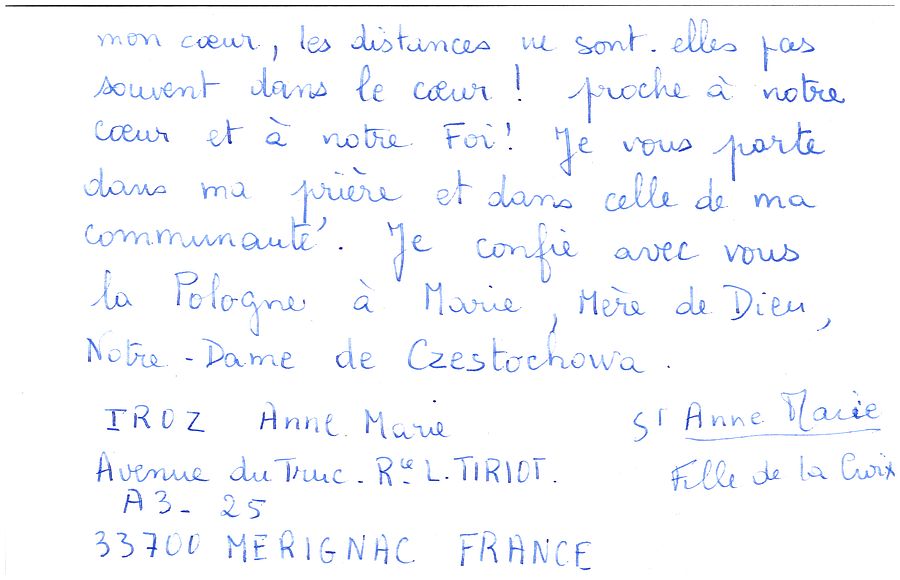 mon cœur, les distances ne sont-elles pas
souvent dans le cœur ! proche à notre
cœur et à notre Foi ! Je vous porte
dans ma prière et dans celle de ma
communauté. Je confie avec vous
la Pologne à Marie, Mère de Dieu,
Notre-Dame de Czestochowa.
IROZ Anne Marie
Sr Anne Marie
Avenue du Truc - Rce L. TIRIOT.
Fille de la Croix
A3 - 25
33700 MERIGNAC FRANCE